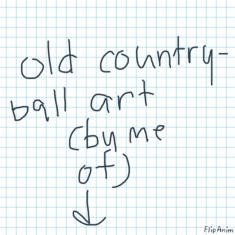 old country-
ball art
(by me
of)
FlipAnim